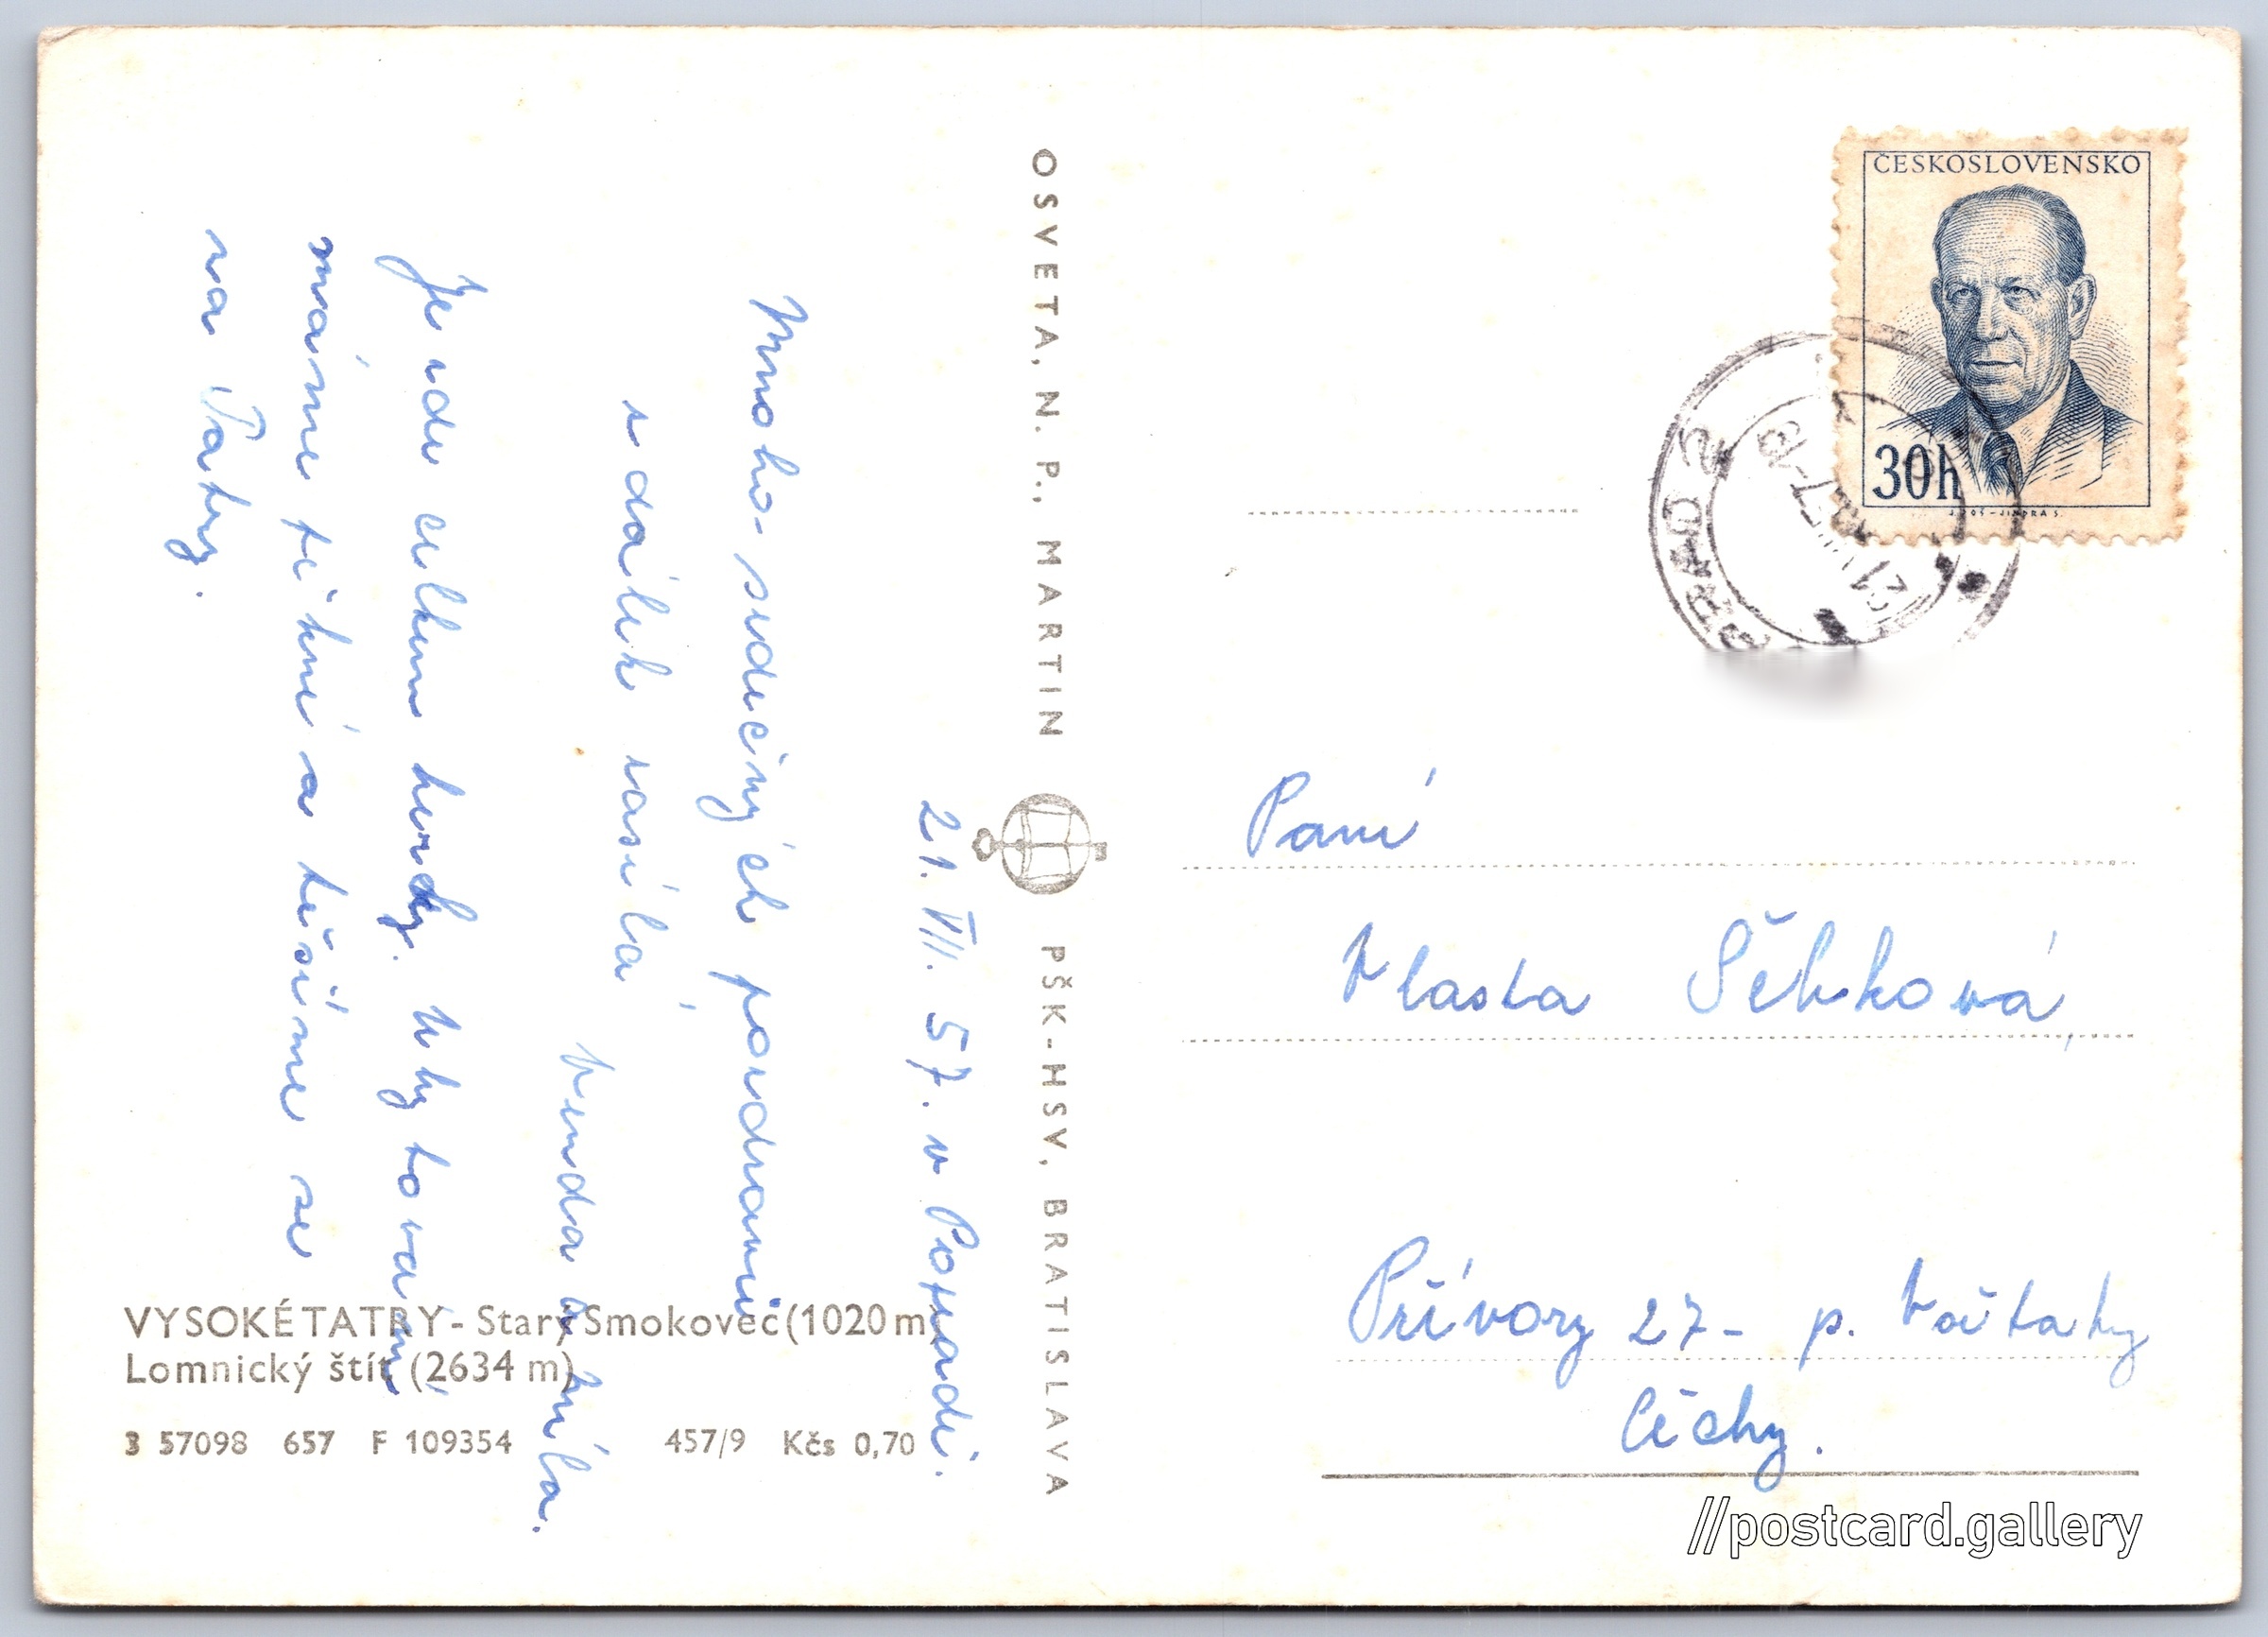 21. VII. 57. v Popradě.
Mnoho srdečných pozdravů
z dálek zasílá
Venda a Míla.
Je zde celkem hezky. Ubytování
máme pěkné a těšíme se
na Tatry.
VYSOKÉ TATRY - Starý Smokovec (1020 m)
Lomnický štít (2634 m)
3 57098 657 F 109354 457/9 Kčs 0,70
OSVETA, N. P., MARTIN PŠK-HSV, BRATISLAVA
ČESKOSLOVENSKO
30h
Paní
Vlasta
Přívory 27 - p. Všetaty
Čechy.
//postcard.gallery